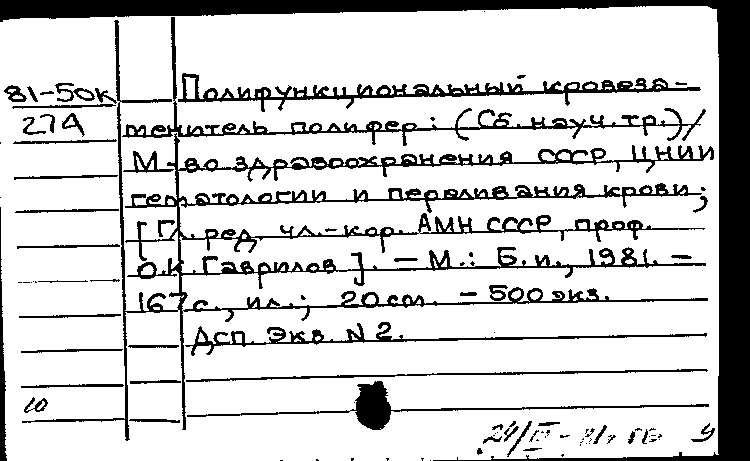 81-50к Полифункциональный кровеза-
274 менитель полифер: (Сб. науч. тр.)/
М-во здравоохранения СССР, ЦНИИ
гематологии и переливания крови;
[Гл. ред. чл.-кор. АМН СССР, проф.
О.К. Гаврилов]. — М.: Б. и., 1981. —
167 с., ил.; 20 см. — 500 экз.
Дсп. Экз. N 2.
10
24/III - 81г